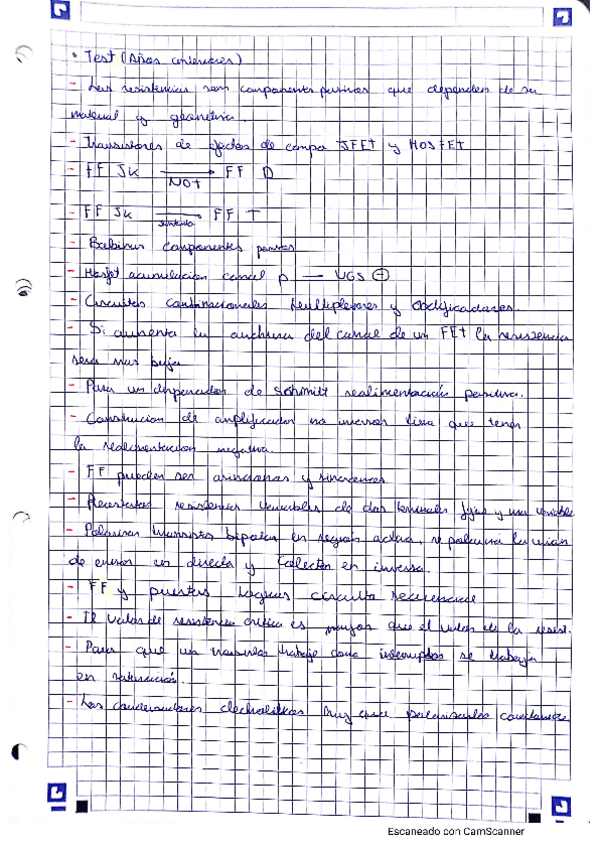 • Test (Años anteriores)
- Las resistencias son componentes pasivos que dependen de su
material y geometria.
- Transistores de efectos de campo JFET y MOSFET
- FF JK → FF D
NOT
- FF JK → FF T
- Bobinas componentes pasivos
- Mosfet acumulacion canal p — VGS ⊕
- Circuitos combinacionales Multiplexores y codificadores.
- Si aumenta la anchura del canal de un FET la resistencia
sera mas baja
- Para un disparador de Schmitt realimentación positiva.
- Construcion de amplificador no inversor tiene que tener
la realimentacion negativa.
- FF pueden ser asincronos y sincronos
- resistencias variables de dos terminales fijos y uno variable
- Polarizar transistor bipolar en región activa, se polariza la union
de emisor en directa y Colector en inversa.
- FF y puertas logicas circuito secuencial
- El valor de resistencia critica es mayor que el valor de la resist.
- Para que un transistor trabaje como interruptor se trabaja
en saturación.
- Los condensadores electroliticos hay que polarizarlos
Escaneado con CamScanner